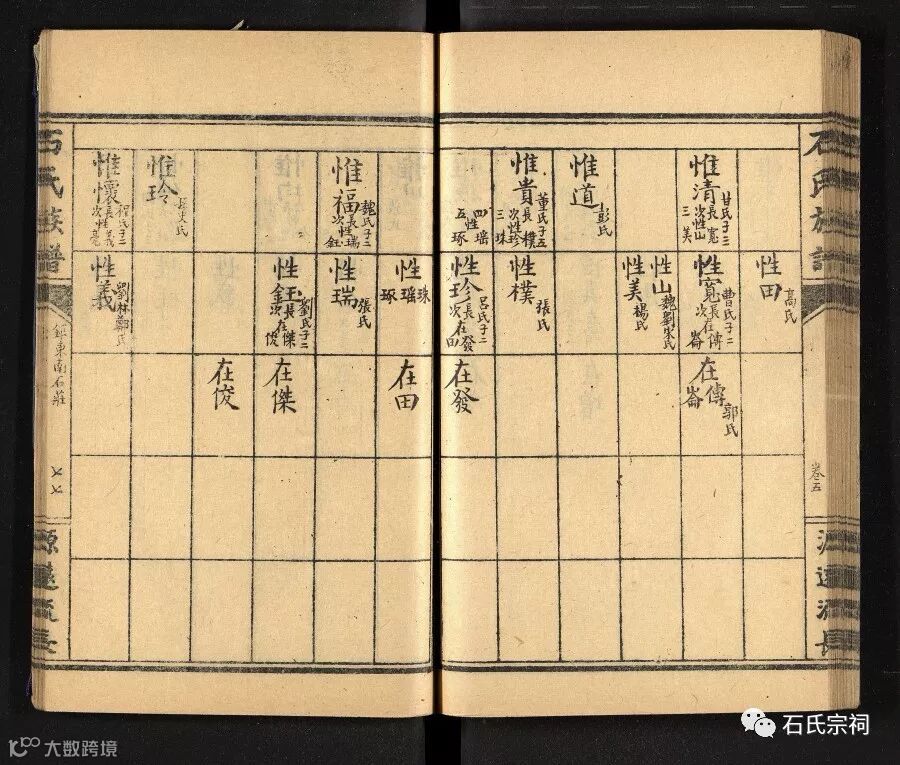 石氏族譜
卷五
源遠流長
惟清 甘氏子三 長寬 次性山 三美
惟道 彭氏
惟貴 董氏子五 長樸 次性珍 三珠
四性瑤 五琢
性田 高氏
性寬 曹氏子二 長在傳 次在崙
性山 魏劉宋氏
性美 楊氏
性樸 張氏
性珍 呂氏子二 長在發 次在田
在傳 郭氏
在崙
在發
惟福 魏氏子二 長性瑞 次性鈺
惟玲
惟懷 程氏子二 長性義 次性亮
性珠
瑤
琢
性瑞 張氏
性鈺 劉氏子二 長在傑 次在俊
性義 劉林鄭氏
在田
在傑
在俊
石氏族譜
鎮東南石莊
源遠流長
石氏宗祠
大数跨境